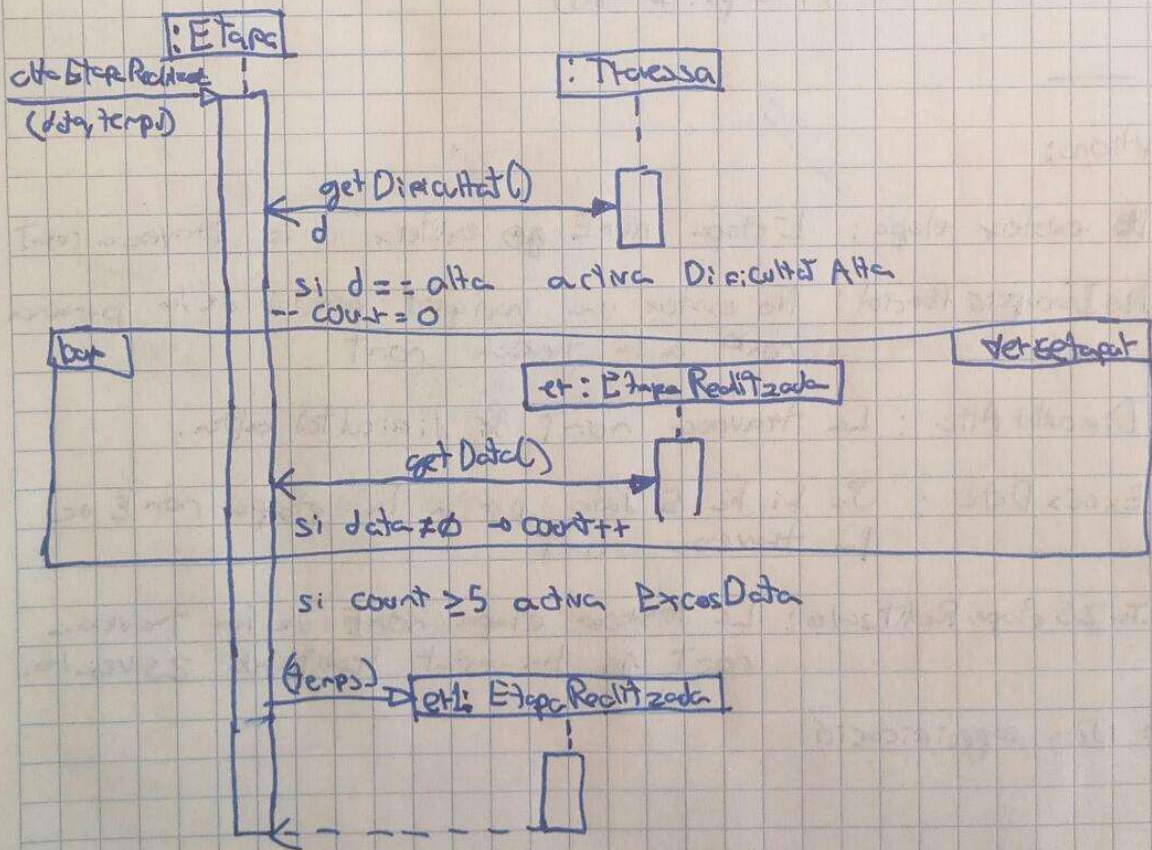 : Etapa
: Travessa
altaEtapaRealitzat
(data, temps)
getDificultat()
d
si d == alta activa DificultatAlta
-- count = 0
er : EtapaRealitzada
getData()
si data ≠ ø → count++
si count ≥ 5 activa ExcesData
(temps)
er1: EtapaRealitzada